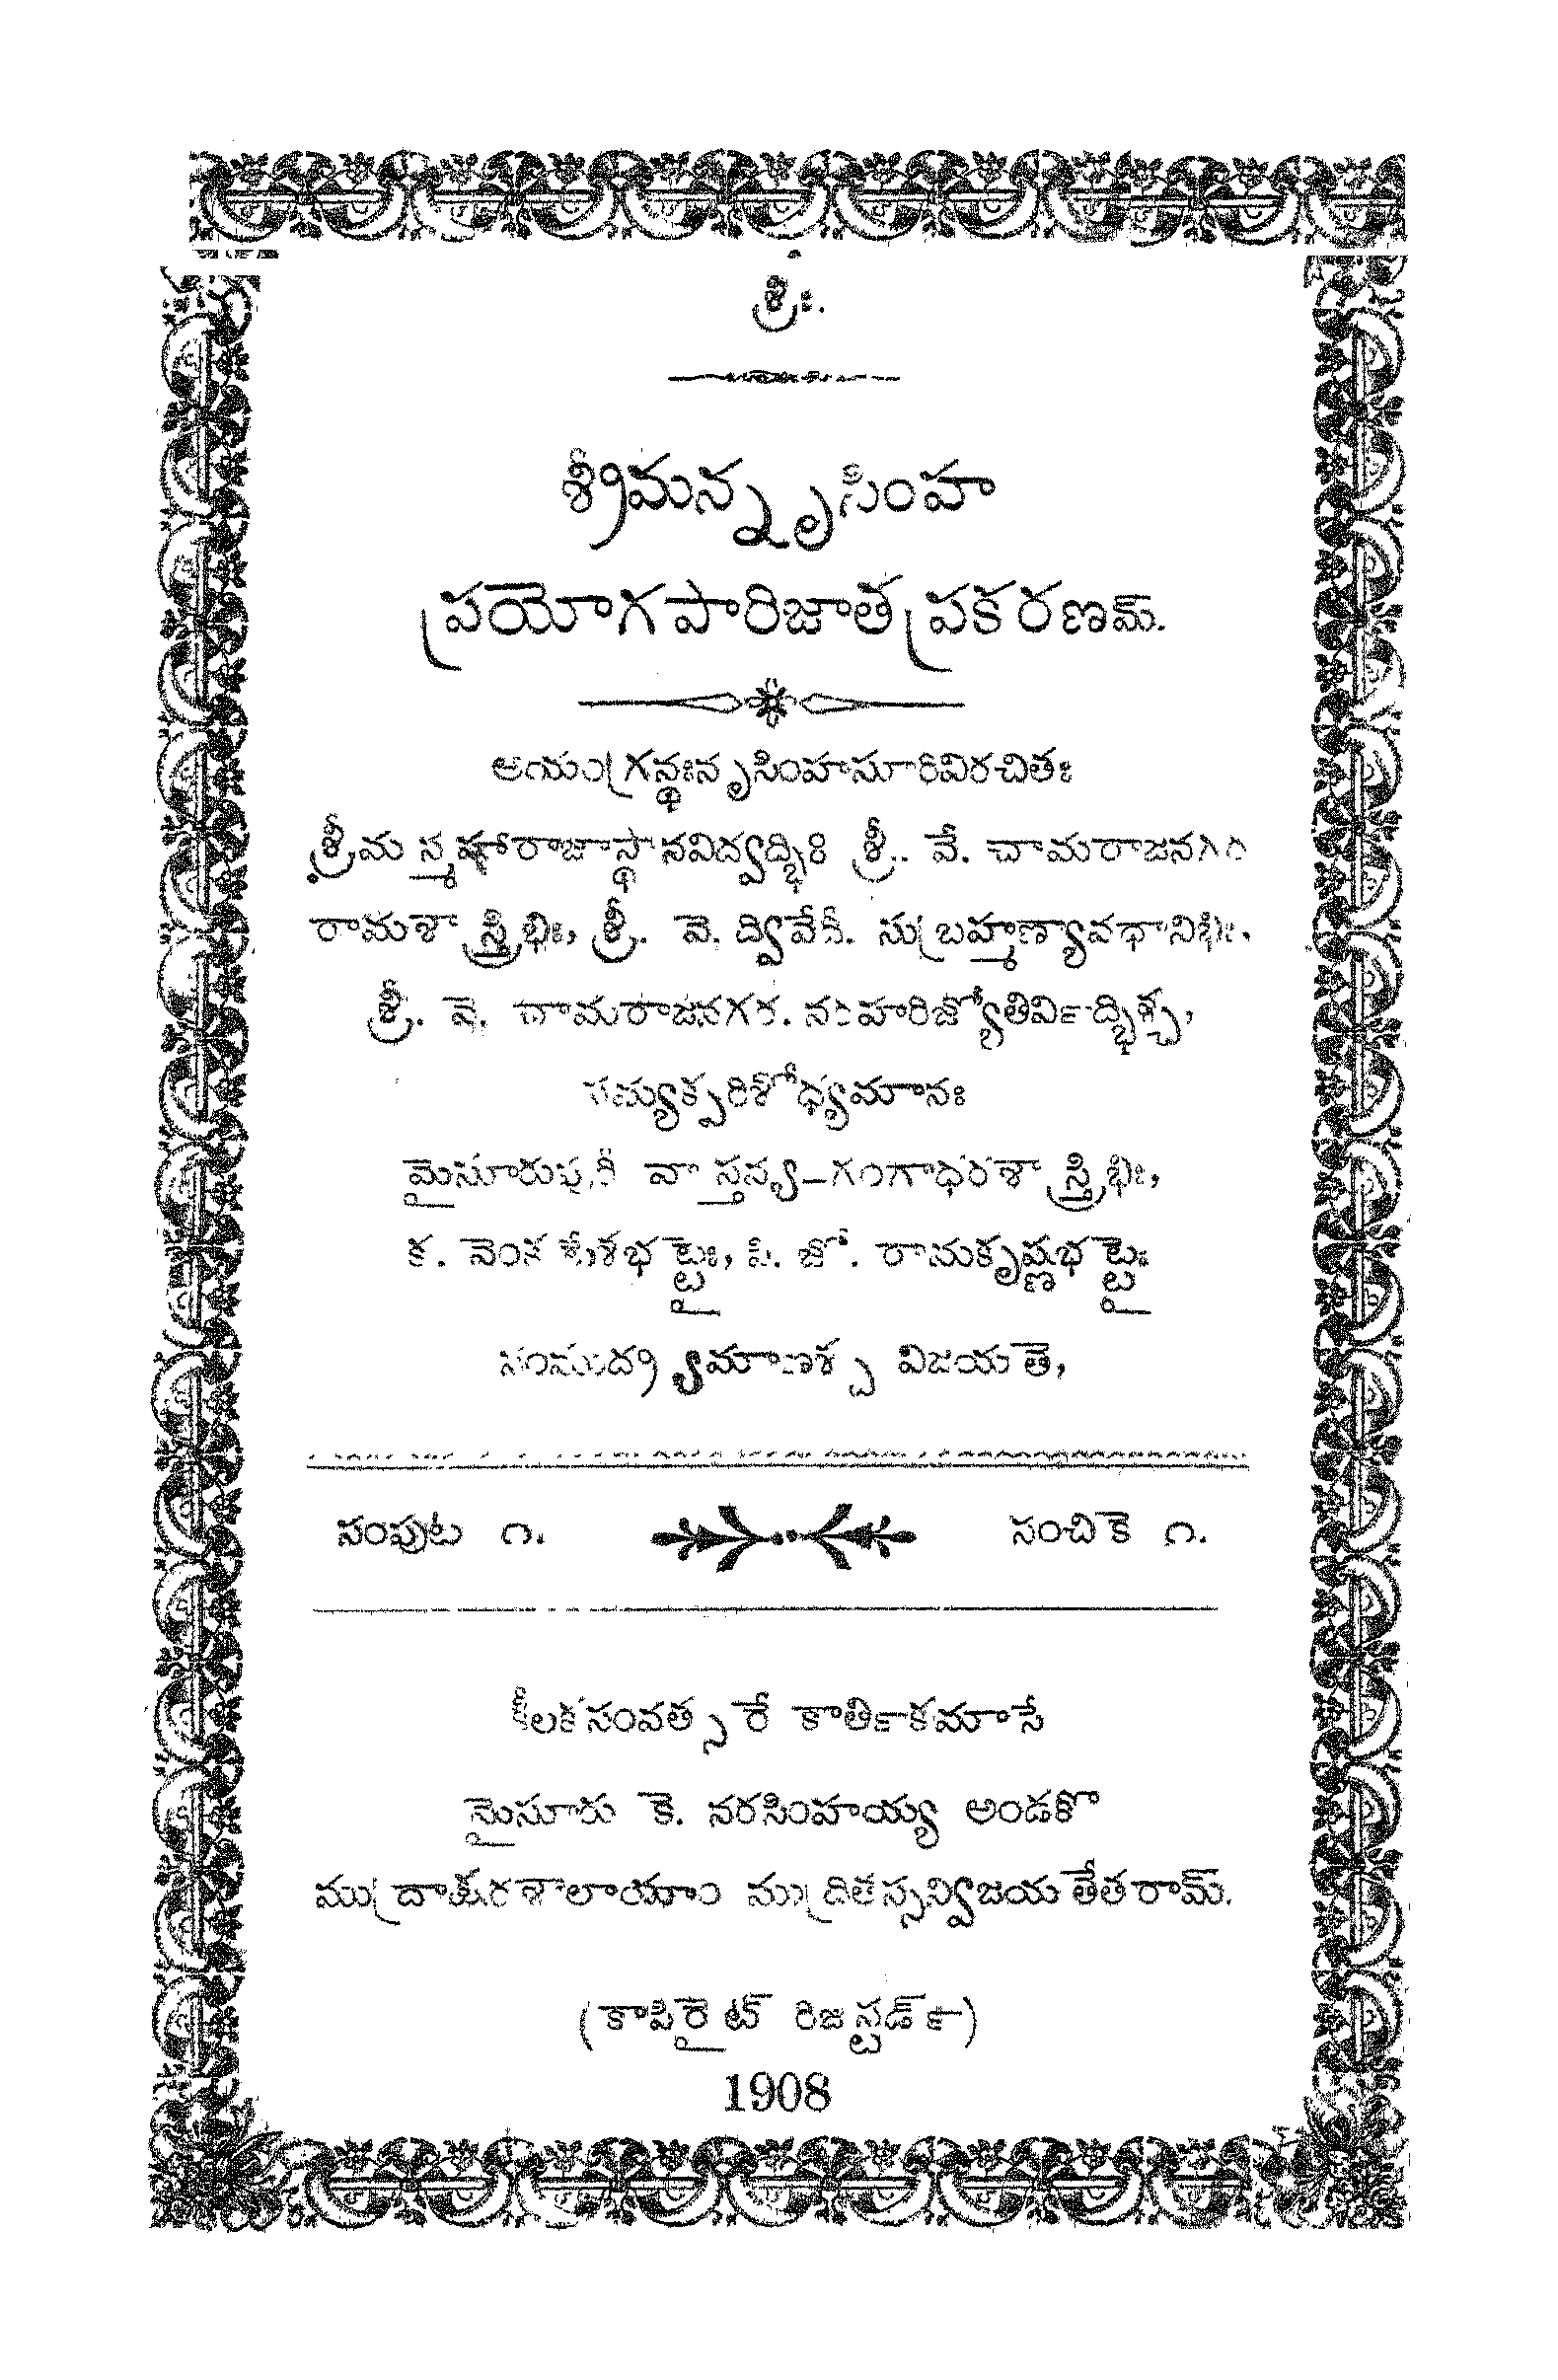 శ్రీః.
శ్రీమన్నృసింహ
ప్రయోగపారిజాతప్రకరణమ్.
అయంగ్రన్థఃనృసింహసూరివిరచితః
శ్రీమన్మహారాజాస్థానవిద్వద్భిః శ్రీ.. వే. చామరాజనగర
రామశాస్త్రిభిః, శ్రీ. వె. ద్వివేది. సుబ్రహ్మణ్యావధానిభిః,
శ్రీ. వె. చామరాజనగర. నరహరిజ్యోతిర్విద్భిశ్చ,
సమ్యక్పరిశోధ్యమానః
మైసూరుపురీ వాస్తవ్య–గంగాధరశాస్త్రిభిః,
క. వెంకటేశభట్టైః, పి. జో. రామకృష్ణభట్టైః
సంముద్ర్యమాణశ్చ విజయతె,
సంపుట ౧. సంచికె ౧.
కీలకసంవత్సరే కార్తికమాసే
మైసూరు కె. నరసింహయ్య అండకొ
ముద్రాక్షరశాలాయాం ముద్రితస్సన్విజయతేతరామ్.
(కాపిరైట్ రిజస్టర్డ్)
1908